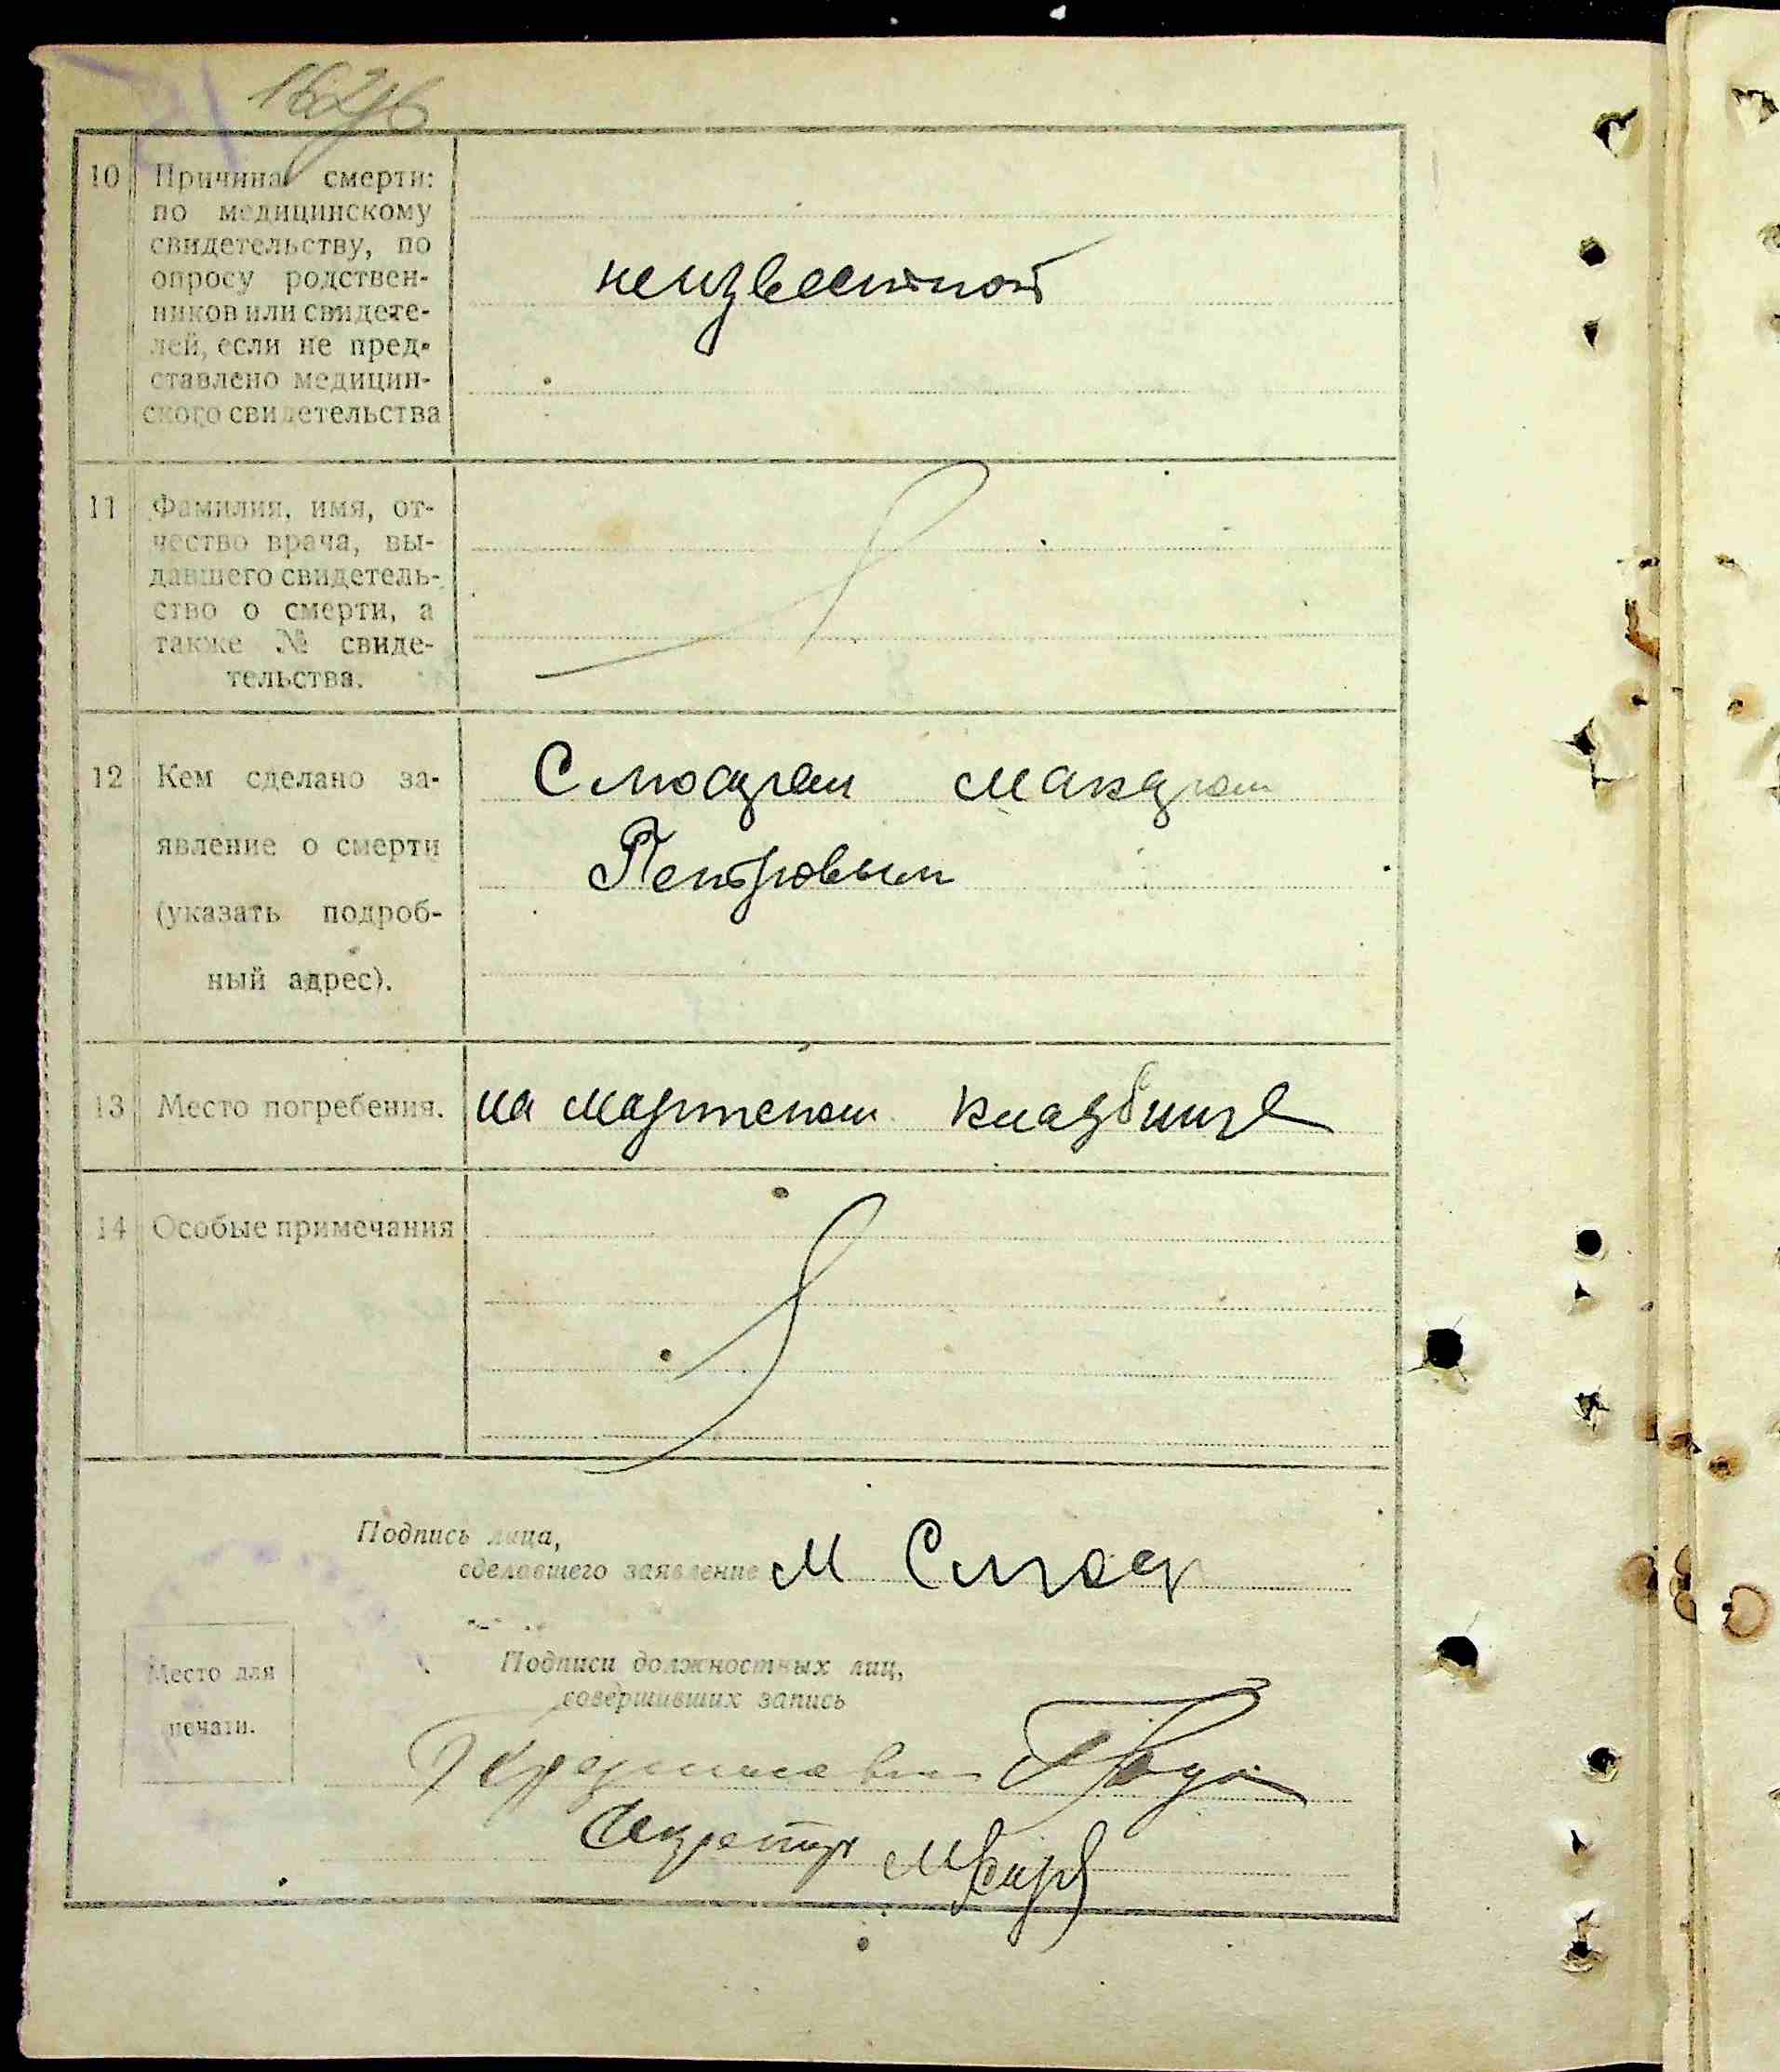 10 Причина смерти:
по медицинскому
свидетельству, по
опросу родствен-
ников или свидете-
лей, если не пред-
ставлено медицин-
ского свидетельства
неизвестной
11 Фамилия, имя, от-
чество врача, вы-
давшего свидетель-
ство о смерти, а
также № свиде-
тельства.
12 Кем сделано за-
явление о смерти
(указать подроб-
ный адрес).
Петровым
13 Место погребения. на кладбище
14 Особые примечания
Подпись лица,
сделавшего заявление М
Место для
печати.
Подписи должностных лиц,
совершивших запись
Секретар